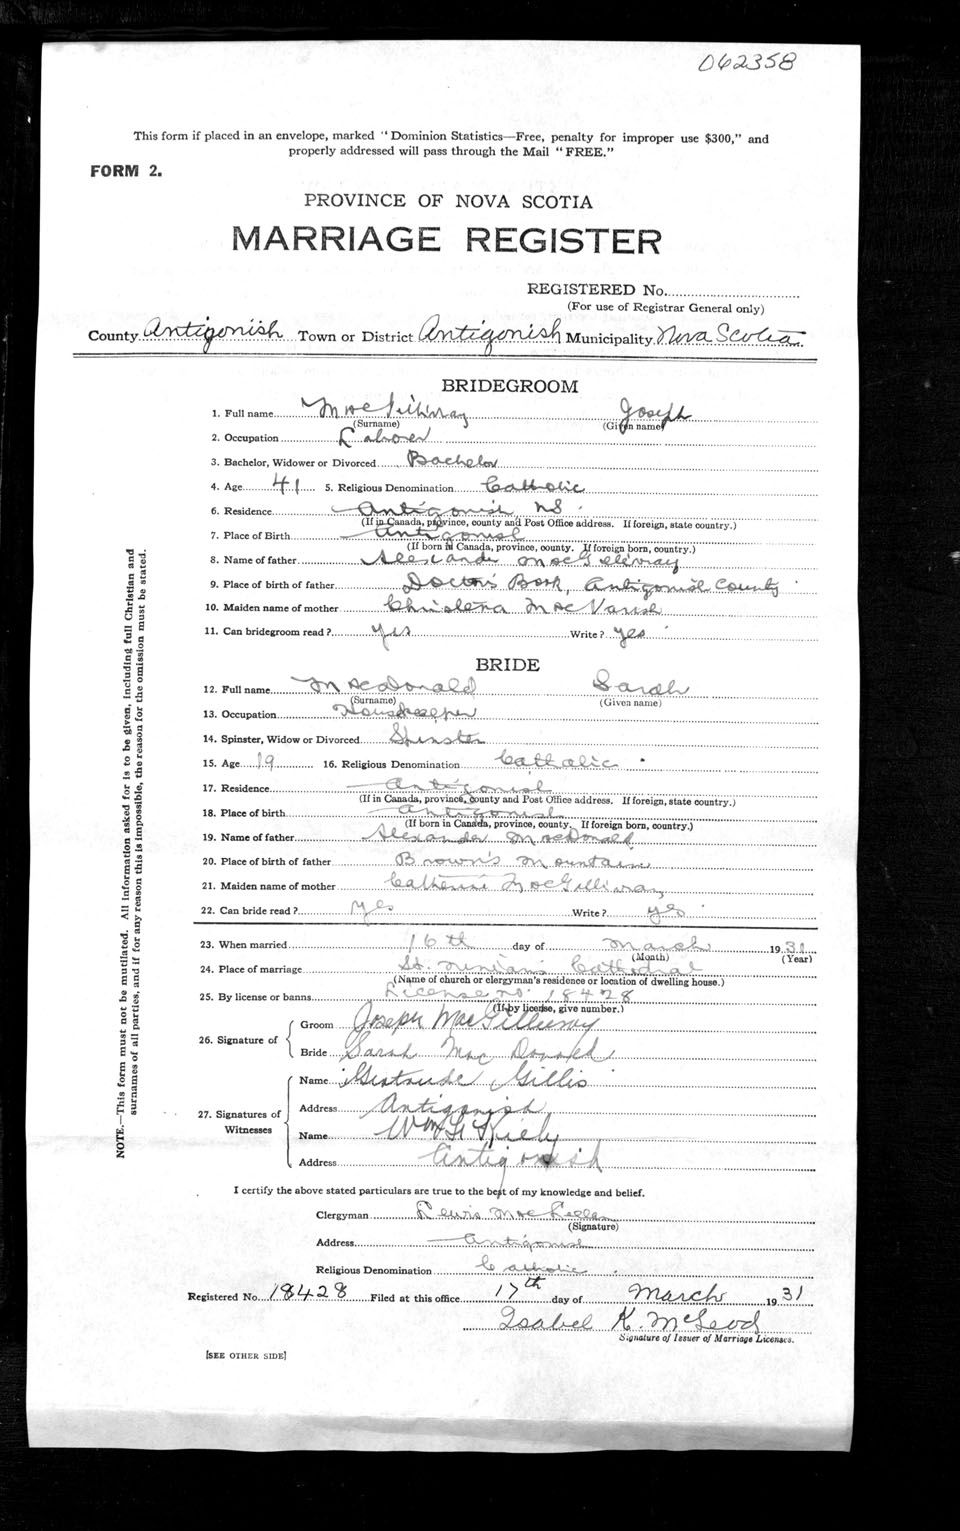 062358
This form if placed in an envelope, marked "Dominion Statistics—Free, penalty for improper use $300," and
properly addressed will pass through the Mail "FREE."
FORM 2.
PROVINCE OF NOVA SCOTIA
MARRIAGE REGISTER
REGISTERED No.
(For use of Registrar General only)
County Antigonish Town or District Antigonish Municipality Nova Scotia
BRIDEGROOM
1. Full name MacGillivray Joseph
(Surname) (Given name)
2. Occupation Laborer
3. Bachelor, Widower or Divorced Bachelor
4. Age 41 5. Religious Denomination Catholic
6. Residence Antigonish NS
(If in Canada, province, county and Post Office address. If foreign, state country.)
7. Place of Birth Antigonish
(If born in Canada, province, county. If foreign born, country.)
8. Name of father Alexander MacGillivray
9. Place of birth of father Doctor's Book, Antigonish County
10. Maiden name of mother Christena MacVarish
11. Can bridegroom read? yes Write? yes
BRIDE
12. Full name MacDonald Sarah
(Surname) (Given name)
13. Occupation Housekeeper
14. Spinster, Widow or Divorced Spinster
15. Age 19 16. Religious Denomination Catholic
17. Residence Antigonish
(If in Canada, province, county and Post Office address. If foreign, state country.)
18. Place of birth Antigonish
(If born in Canada, province, county. If foreign born, country.)
19. Name of father Alexander MacDonald
20. Place of birth of father Brown's Mountain
21. Maiden name of mother Catherine MacGillivray
22. Can bride read? yes Write? yes
23. When married 16th day of March 1931
(Month) (Year)
24. Place of marriage St. Ninian's Cathedral
(Name of church or clergyman's residence or location of dwelling house.)
25. By license or banns License no. 18428
(If by license, give number.)
26. Signature of
Groom Joseph MacGillivray
Bride Sarah MacDonald
27. Signatures of Witnesses
Name Gertrude Gillis
Address Antigonish
Name Wm
Address Antigonish
I certify the above stated particulars are true to the best of my knowledge and belief.
Clergyman Lewis MacLellan
(Signature)
Address Antigonish
Religious Denomination Catholic
Registered No. 18428 Filed at this office 17th day of March 1931
Isabel K. McLeod
Signature of Issuer of Marriage Licenses.
[SEE OTHER SIDE]
NOTE.—This form must not be mutilated. All information asked for is to be given, including full Christian and
surnames of all parties, and if for any reason this is impossible, the reason for the omission must be stated.